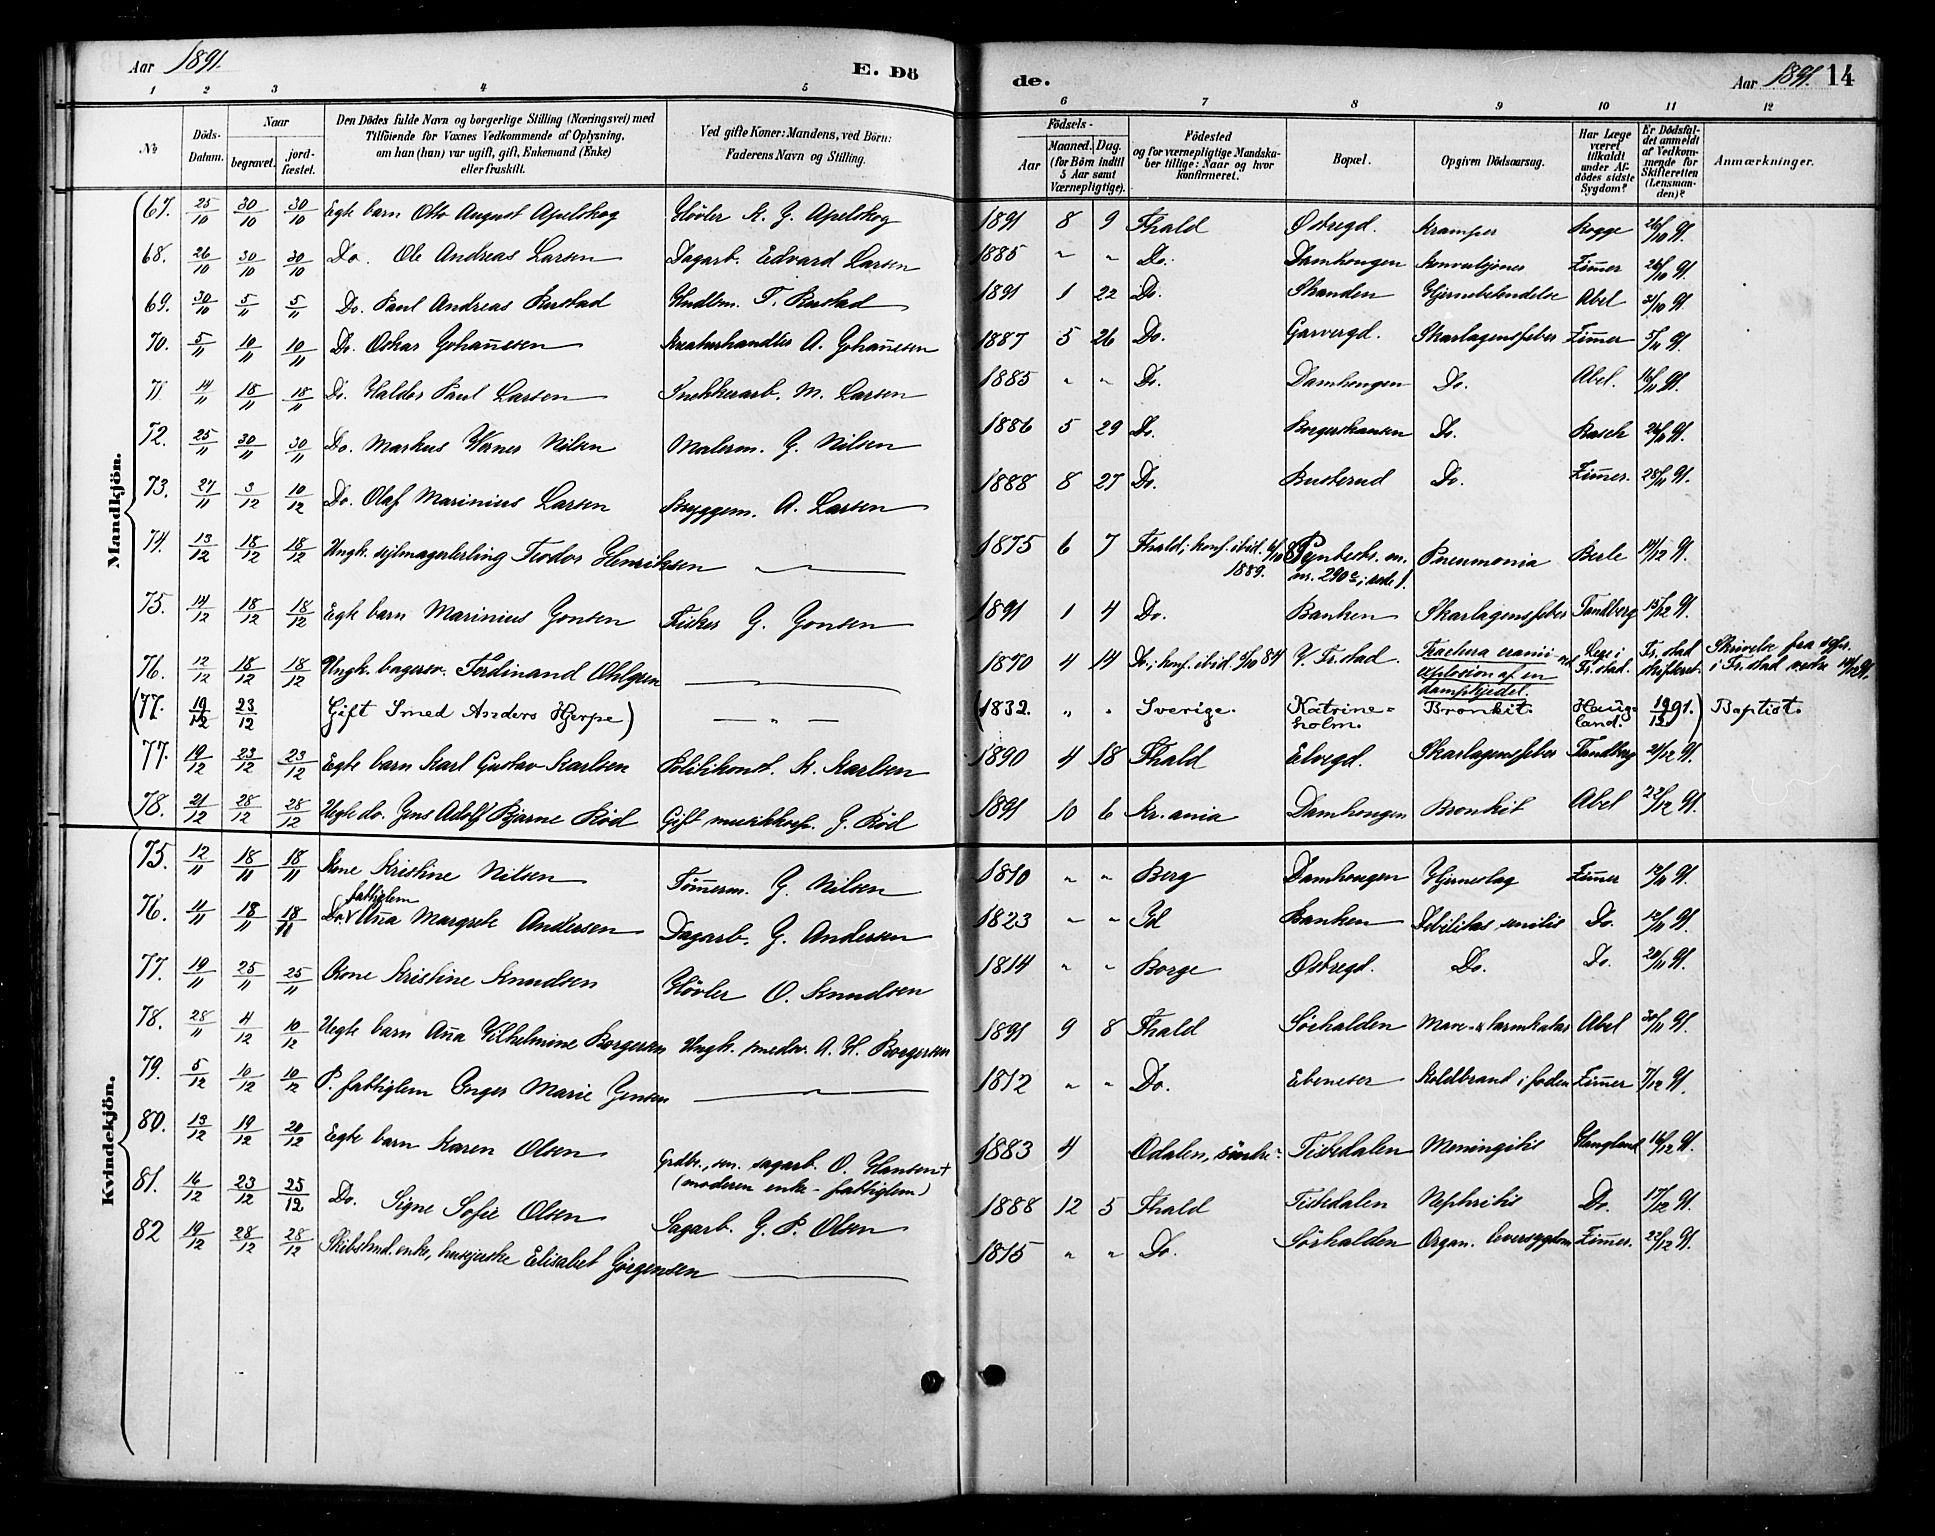 Aar 1891. E. Dö
de. Aar 1891. 14
1 2 3 4 5 6 7 8 9 10 11 12
No. Döds-Datum. Naar begravet. jordfæstet. Den Dödes fulde Navn og borgerlige Stilling (Næringsvei) med Tilföiende for Voxnes Vedkommende af Oplysning, om han (hun) var ugift, gift, Enkemand (Enke) eller fraskilt. Ved gifte Koner: Mandens, ved Börn: Faderens Navn og Stilling. Födsels- Aar Maaned. Dag. (for Börn indtil 5 Aar samt Værnepligtige). Födested og for værnepligtige Mandskaber tillige: Naar og hvor konfirmeret. Bopæl. Opgiven Dödsaarsag. Har Læge været tilkaldt under Afdödes sidste Sygdom? Er Dödsfaldet anmeldt af Vedkommende for Skifteretten (Lensmanden)? Anmærkninger.
Mandkjön.
67. 25/10 30/10 30/10 Egte barn Otto August Apelskog Hövler K. G. Apelskog 1891 8 9 Fhald Östregd. Kramper Rogge 26/10 91.
68. 26/10 30/10 30/10 Do. Ole Andreas Larsen Dagarb. Edvard Larsen 1885 " " Do. Damhougen Konvulsjoner Zimmer 26/10 91.
69. 30/10 5/11 5/11 Do. Paul Andreas Rustad Hndlm. T. Rustad 1891 1 22 Do. Skanden Hjernebetendelse Abel 31/10 91.
70. 5/11 10/11 10/11 Do. Oskar Johan̄esen Kreaturhandler A. Johan̄esen 1887 5 26 Do. Garvergd. Skarlagensfeber Zim̄er 5/11 91.
71 14/11 18/11 18/11 Do. Haldor Paul Larsen Snekkerarb. M. Larsen 1885 " " Do. Damhougen Do. Abel. 16/11 91.
72. 25/11 30/11 30/11 Do. Markus Verner Nilsen Malerm. G. Nilsen 1886 5 29 Do. Borgerskansen Do. Rasch 26/11 91.
73. 27/11 3/12 10/12 Do. Olaf Marinius Larsen Bryggem. A. Larsen 1888 8 27 Do. Busterud Do. Zim̄er. 28/11 91.
74. 13/12 18/12 18/12 Ungk. sejlmagerlerling Teodor Henriksen — " — 1875 6 7 Fhald; konf. ibid. 6/10 1889. nr. 290 Pneumonia Berle 14/12 91.
75. 14/12 18/12 18/12 Egte barn Marinius Jonsen Fisker J. Jonsen 1891 1 4 Do. Banken Skarlagensfeber Tandberg 15/12 91.
76. 12/12 18/12 18/12 Ungk. bagersv. Ferdinand Ohlgren — " — 1870 4 14 Do.; konf. ibid. 5/10 84 V. Fr.stad. Fractura cranii ved explosion af en dampkjedel. Lege i Fr.stad. Fr.stad skifteret. Skrivelse fra sgpr. i Fr.stad vestre 14/12 91.
(77. 19/12 23/12 Gift Smed Anders Hjerpe) — " — (1832. " " Sverige. Katrineholm. Bronkit. Haugland. 19/12 91.) Baptist.
77. 19/12 23/12 23/12 Egte barn Karl Gustav Karlsen Politikonst. K. Karlsen 1890 4 18 Fhald Elvegd. Skarlagensfeber Tandberg 21/12 91.
78. 21/12 28/12 28/12 Uegte do. Jens Adolf Bjarne Röd Gift musikkorp. G. Röd 1891 10 6 Kr.ania Damhougen Bronkit Abel 22/12 91.
Kvindekjön.
75. 12/11 18/11 18/11 Kone Kristine Nilsen Töm̄erm. G. Nilsen 1810 " " Berg Damhougen Hjerneslag Zim̄er 13/11 91.
76. 11/11 18/11 18/11 Do. fattiglem An̄a Margrete Andersen Dagarb. G. Andersen 1823 " " Id Banken Debilitas senilis Do. 12/11 91.
77. 19/11 25/11 25/11 Kone Kristine Knudsen Hövler O. Knudsen 1814 " " Borge Östregd. Do. Do. 20/11 91.
78. 28/11 4/12 10/12 Uegte barn An̄a Vilhelmine Borgersen Ungk. smedsv. A. H. Borgersen 1891 9 8 Fhald Sörhalden Mave- & tarmkatar Abel 30/11 91.
79. 5/12 10/12 10/12 P. fattiglem Inger Marie Jensen — " — 1812 " " Do. Ebeneser Koldbrand i foden Zim̄er 7/12 91.
80. 13/12 19/12 20/12 Egte barn Karen Olsen Grdbr.sen. sagarb. O. Hansen † (moderen enke - fattiglem) 1883 4 Odalen, söndre Tistedalen Meningitis Haugland 16/12 91.
81. 16/12 23/12 25/12 Do. Signe Sofie Olsen Sagarb. G. P. Olsen 1888 12 5 Fhald Tistedalen Nephritis Do. 17/12 91.
82 19/12 28/12 28/12 Skibstmd. enke, husejerske Elisabet Jörgensen — 1815 " " Do. Sörhalden Organ. leversygdom Zim̄er. 22/12 91.